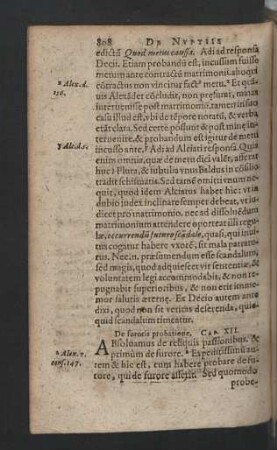 808 DE NVPTIIS
edictũ Quod metus caussa. Adi ad responsa
Decii. Etiam probandũ est, incussum fuisse
metum ante contractũ matrimonii. alioqui
x Alex. d.
cõtractus non vincitur fact° metu. x Et quãuis
Alexãder cõcludit, non præsumi, metũ
interuenisse post matrimoniũ. tamen in suo
casu illud est, vbi de tẽpore notatũ, & verba
etãt clara. Sed certe possunt & post minę interuenire,
& probandum est igitur de metu
y Ad. d. c.
incusso ante. y Adi ad Alciati responsa. Quienim
omnia, quæ de metu dici valẽt, afferunt
hæc: Plura, & iubilia vnus Baldus in cõsilio
tradit schismatis. Sed tamẽ omitti enumerandum,
quod idem Alciatus habet hic: vt in
dubio iudex inclinare semper debeat, vt indicet
pro matrimonio. nec ad dissoluẽdum
matrimonium attendere oporteat illi regulæ,
recurrendũ tumore scãdale, quasi, qui inuitus
cogatur habere vxorẽ, sit mala patraturus.
Nec in. præsumendum esse scandalum,
sed magis, quod adquiescet vir sententiæ, &
voluntatem legi accommodabit, & non repugnabit
superioribus, & non erit immemor
salutis æternę. Ex Decio autem ante
dixi, quod non sit veritas deserenda, quiequid
scandalum timeatur.
De furoris probatione. CAP. XII.
ABsoluamus de reliquis passionibus. &
z Alex. 7.
cons. 147.
primùm de furore. z Expeditissimũ autem
& hic est, eum habere probare de furore,
qui de furore asserit. Sed quomodo
probe-